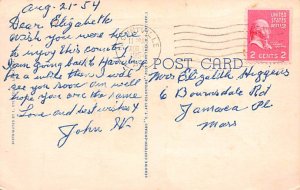 Aug. 21-54
Dear Elizabeth
Wish you were here
to enjoy this country
I am going back to
for a while then I will
see you soon am well
hope you are the same
Love and best wishes
John W.
POST CARD
UNITED STATES
2 CENTS 2
Mrs Elizabeth Huggins
6 Rd
Jamaica Pl.
Mass